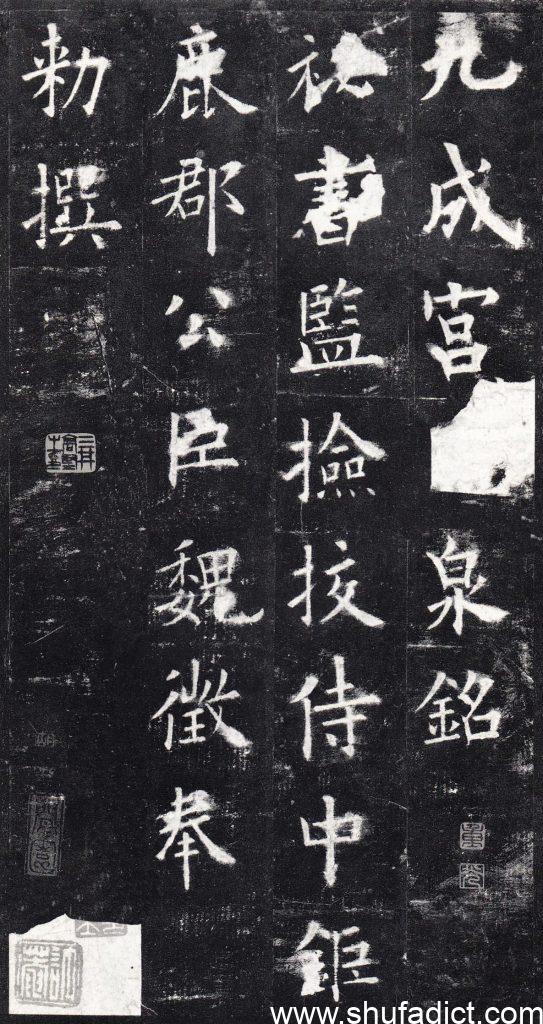 九成宮泉銘
祕書監撿挍侍中鉅
鹿郡公臣魏徵奉
勑撰
www.shufadict.com